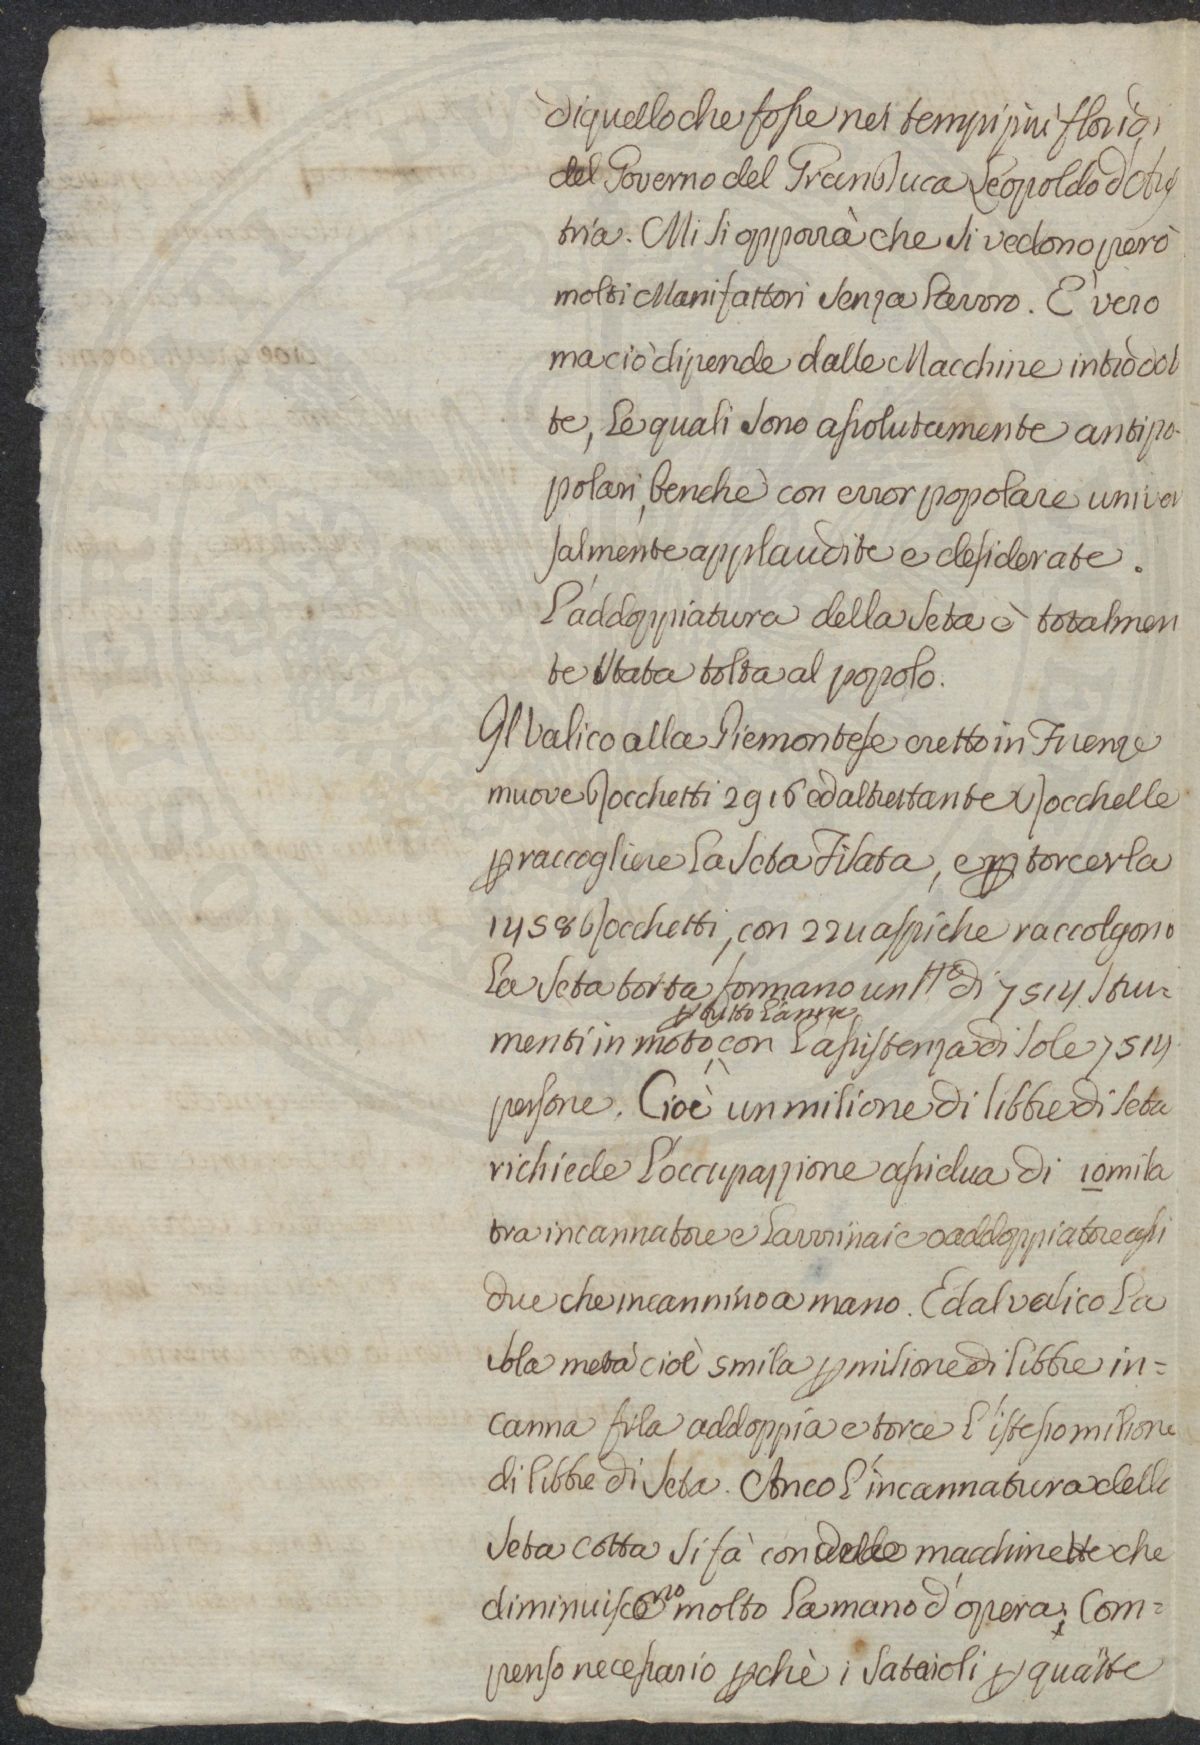 di quello che fosse nei tempi più floridi
del Governo del GranDuca Leopoldo d'Aus
tria. Mi si opporrà che si vedono però
molti Manifattori senza Lavoro. È vero
ma ciò dipende dalle Macchine introdot
te, Le quali sono assolutamente antipo-
polari, benchè con error popolare univer
salmente applaudite e desiderate.
L'addoppiatura della Seta è totalmen
te stata tolta al popolo.
Il Valico alla Piemontese eretto in Firenze
muove Rocchetti 2916 ed altrettante Rocchelle
p raccogliere La Seta Filata, e p torcerla
1458 Rocchetti, con 224 aspiche raccolgono
La Seta torta formano un N.o di 7514 Stru-
p tutto L'anno
menti in moto, con L'assistenza di sole 7514
persone. Cioè un milione di libbre di Seta
richiede L'occupazzione assidua di 10mila
tra incannatore e Lavorinaie o addoppiatore
due che incannino a mano. Ed al valico La
sola metà cioè 5mila p milione di libbre in=
canna fila addoppia e torce L'istesso milione
di libbre di Seta. Anco L'incannatura della
Seta cotta si fà con delle macchinette che
diminuiscono molto La mano d'opera; Com=
penso necessario pchè i Setaioli p quante